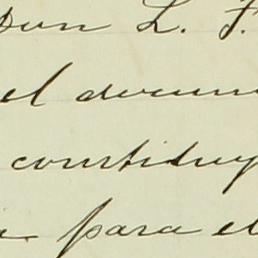 Don L. F.
el docum
constituy
para el